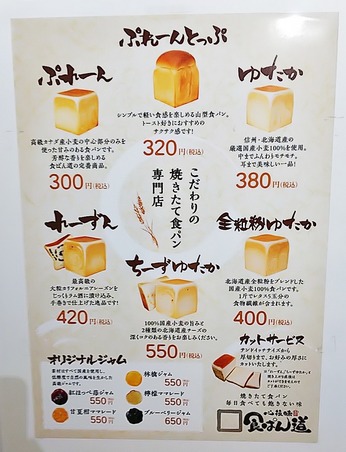 ぷれーんとっぷ
シンプルで軽い食感を楽しめる山型食パン。
トースト好きにおすすめの
サクサク感です!
320円(税込)
ぷれーん
高級カナダ産小麦の中心部分のみを
使った甘みのある食パンです。
芳醇な香りを楽しめる
食ぱん道の定番商品。
300円(税込)
ゆたか
信州・北海道産の
厳選国産小麦100%を使用。
中までふんわりモチモチ。
耳まで美味しい一品!
380円(税込)
こだわりの
焼きたて食パン
専門店
れーずん
最高級の
大粒カリフォルニアレーズンを
じっくりラム酒に漬け込み、
手巻きで仕上げた逸品です!
420円(税込)
ちーずゆたか
100%国産小麦の旨みと
2種類の北海道産チーズの
深くコクのある香りをお楽しみください。
550円(税込)
全粒粉ゆたか
北海道産全粒粉をブレンドした
国産小麦100%食パンです。
1斤でレタス5玉分の
食物繊維が含まれます。
400円(税込)
オリジナルジャム
林檎ジャム
550円
紅ほっぺ苺ジャム
550円
檸檬マーマレード
550円
甘夏柑マーマレード
550円
ブルーベリージャム
650円
カットサービス
サンドイッチサイズから
厚切りまで、お好みの厚さに
カットいたします。
焼きたて食パン
毎日食べても飽きない味
食ぱん道